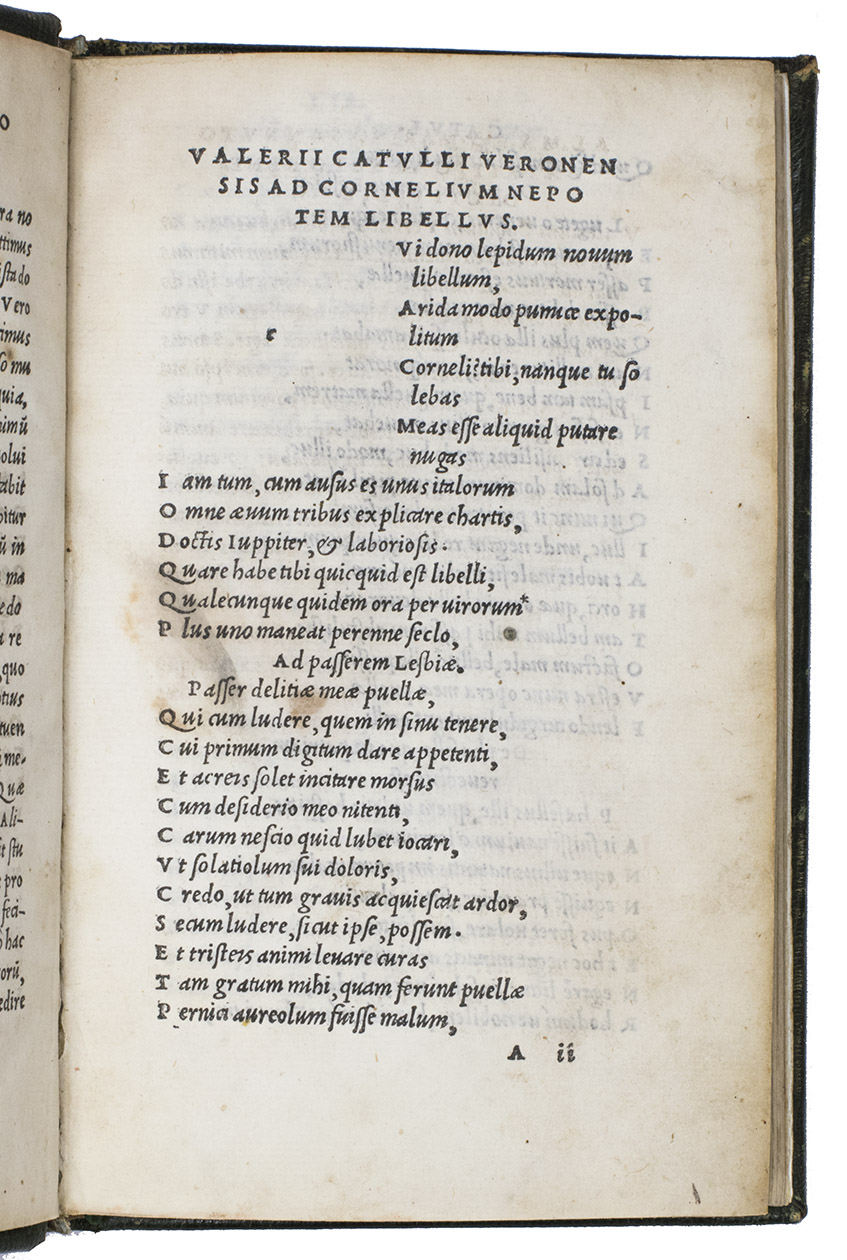 O
ra no
ttimus
ista do
Vero
imus
so mu
quia,
imū
olui
abit
bitur
ū in
ma
edo
a re
quo
otius
tuen
ime-
Quæ
Ali-
t stu
pro
feci-
hac
orū,
edire
VALERII CATVLLI VERONEN
SIS AD CORNELIVM NEPO
TEM LIBELLVS.
Vi dono lepidum nouum
libellum,
Arida modo pumice expo-
litum
c
Corneli?tibi,nanque tu so
lebas
Meas esse aliquid putare
nugas
I am tum, cum ausus es unus italorum
O mne æuum tribus explicare chartis,
D octis Iuppiter, & laboriosis.
Quare habe tibi quicquid est libelli,
Qualecunque quidem ora per uirorum*
P lus uno maneat perenne seclo,
Ad passerem Lesbiæ.
Passer delitiæ meæ puellæ,
Qui cum ludere, quem in sinu tenere,
C ui primum digitum dare appetenti,
E t acreis solet incitare morsus
C um desiderio meo nitenti,
C arum nescio quid lubet iocari,
V t solatiolum sui doloris,
C redo, ut tum grauis acquiescat ardor,
S ecum ludere, sicut ipse, possem.
E t tristeis animi leuare curas
T am gratum mihi, quam ferunt puellæ
P ernici aureolum fuisse malum,
A ii